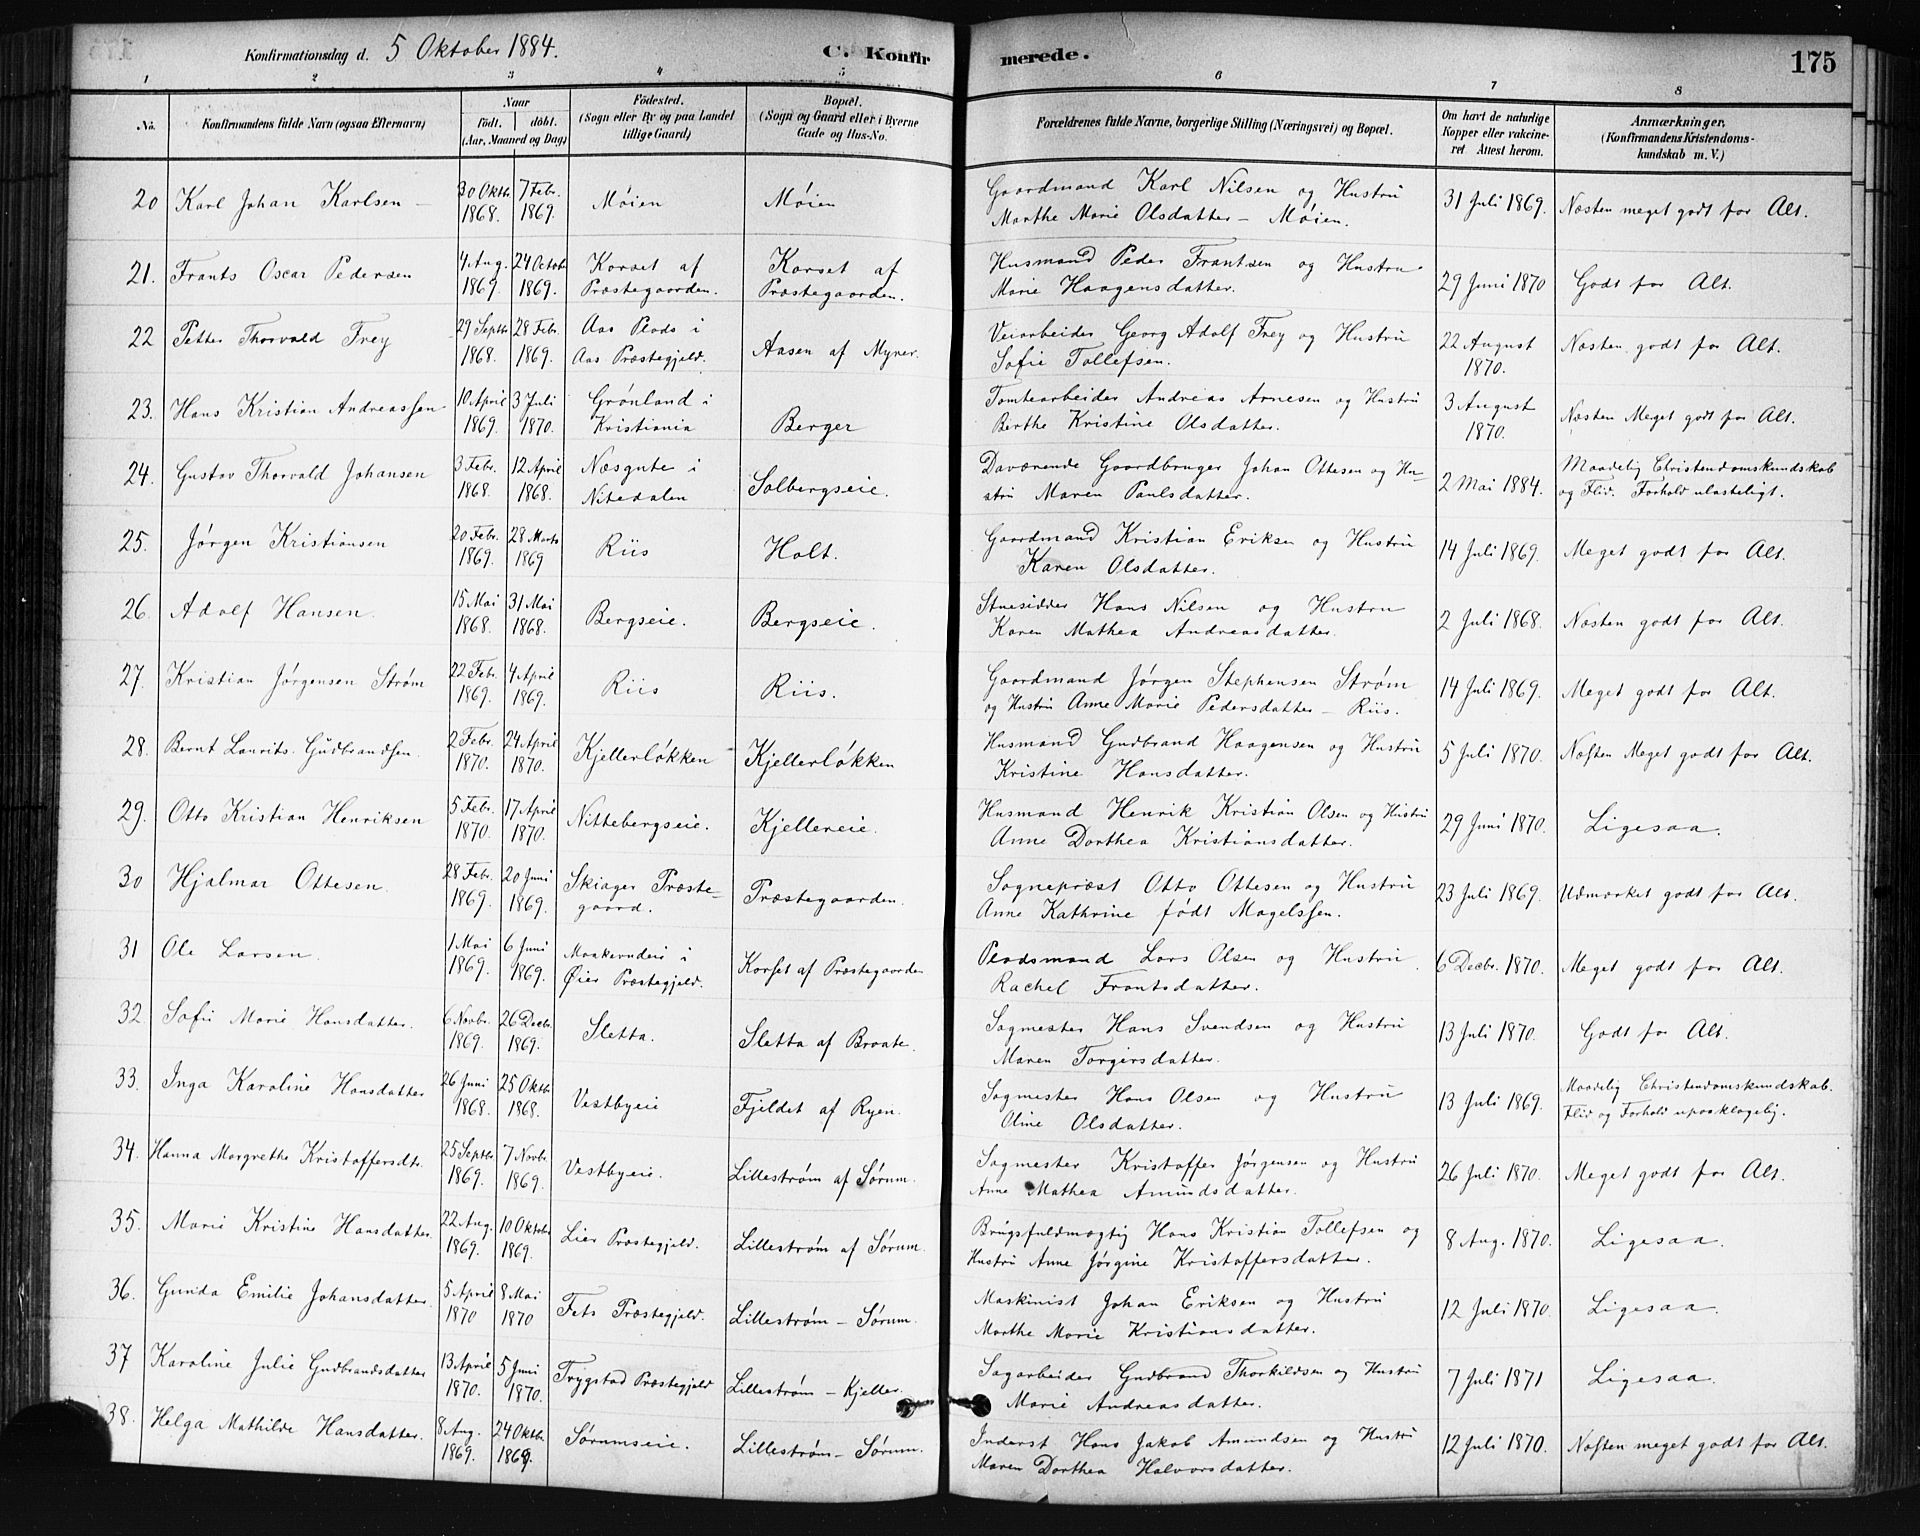 Konfirmationsdag d. 5 Oktober 1884. C. Konfirmerede. 175
1 2 3 4 5 6 7 8
No. Konfirmandens fulde Navn (ogsaa Efternavn) Naar födt. döbt. (Aar, Maaned og Dag) Födested. (Sogn eller By og paa Landet tillige Gaard) Bopæl. (Sogn og Gaard eller i Byerne Gade og Hus-No. Forældrenes fulde Navne, borgerlige Stilling (Næringsvei) og Bopæl. Om havt de naturlige Kopper eller vakcineret Attest herom. Anmærkninger. (Konfirmandens Kristendomskundskab m. V.)
20 Karl Johan Karlsen 30 Oktbr. 1868. 7 Febr. 1869. Møien Møien Gaardmand Karl Nilsen og Hustru Marthe Marie Olsdatter – Møien. 31 Juli 1869. Næsten meget godt for Alt.
21. Frants Oscar Pedersen 4 Aug. 1869. 24 Octobr 1869. Korset af Præstegaarden. Korset af Præstegaarden. Husmand Peder Frantsen og Hustru Marie Haagensdatter. 29 Juni 1870 Godt for Alt.
22 Petter Thorvald Frey 29 Septbr 1868. 28 Febr. 1869. Aas Plads i Aas Præstegjeld. Aasen af Myrer. Veiarbeider Georg Adolf Frey og Hustru Sofie Tollefsen. 22 August 1870. Næsten godt for Alt.
23. Hans Kristian Andreassen 10 April 1869. 3 Juli 1870. Grønland i Kristiania Berger Tomtearbeider Andreas Arnesen og Hustru Berthe Kristine Olsdatter. 3 August 1870. Næsten Meget godt for Alt.
24. Gustav Thorvald Johansen 3 Febr. 1868. 12 April 1868. Næsgute i Nitedalen Solbergseie. Daværende Gaardbruger Johan Ottesen og Hustru Maren Paulsdatter. 2 Mai 1884. Maadelig Christendomskundskab og Flid. Forhold ulasteligt.
25. Jørgen Kristiansen 20 Febr. 1869. 28 Marts 1869 Riis Holt. Gaardmand Kristian Eriksen og Hustru Karen Olsdatter. 14 Juli 1869. Meget godt for Alt.
26. Adolf Hansen. 15 Mai 1868. 31 Mai 1868. Bergseie. Bergseie. Stuesidder Hans Nilsen og Hustru Karen Mathea Andreasdatter. 2 Juli 1868. Næsten godt for Alt.
27. Kristian Jørgensen Strøm 22 Febr. 1869. 4 April 1869. Riis Riis. Gaardmand Jørgen Stephensen Strøm og Hustru Anne Marie Pedersdatter – Riis. 14 Juli 1869. Meget godt for Alt.
28. Bernt Laurits Gudbrandsen. 2 Febr. 1870. 24 April 1870. Kjellerløkken Kjellerløkken Husmand Gudbrand Haagensen og Hustru Kristine Hansdatter. 5 Juli 1870. Næsten Meget godt for Alt.
29. Otto Kristian Henriksen 5 Febr. 1870. 17 April 1870. Nittebergseie. Kjellereie. Husmand Henrik Kristian Olsen og Hustru Anne Dorthea Kristiansdatter. 29 Juni 1870. Ligesaa.
30 Hjalmar Ottesen 28 Febr. 1869. 20 Juni 1869. Skiager Præstegaard. Præstegaarden. Sognepræst Otto Ottesen og Hustru Anne Kathrine født Magelssen. 23 Juli 1869. Udmærket godt for Alt.
31 Ole Larsen 1 Mai 1869. 6 Juni 1869. i Øier Præstegjeld. Korset af Præstegaarden Pladsmand Lars Olsen og Hustru Rachel Frantsdatter. 6 Decbr. 1870. Meget godt for Alt.
32. Sofie Marie Hansdatter. 6 Novbr. 1869. 26 Decbr. 1869. Sletta. Sletta af Braate. Sagmester Hans Svendsen og Hustru Maren Torgersdatter. 13 Juli 1870. Godt for Alt.
33. Inga Karoline Hansdatter 26 Juni 1868. 25 Oktbr 1868. Vestbyeie Fjeldet af Ryen. Sagmester Hans Olsen og Hustru Oline Olsdatter. 13 Juli 1869. Maadelig Christendomskundskab. Flid og Forhold upaaklagelig.
34. Hanna Margrethe Kristoffersdtr. 25 Septbr 1869. 7 Novbr. 1869. Vestbyeie. Lillestrøm af Sørum. Sagmester Kristoffer Jørgensen og Hustru Anne Mathea Amundsdatter. 26 Juli 1870. Meget godt for Alt.
35. Marie Kristine Hansdatter. 22 Aug. 1869. 10 Oktober 1869. Lier Præstegjeld. Lillestrøm af Sørum. Brugsfuldmægtig Hans Kristian Tollefsen og Hustru Anne Jørgine Kristoffersdatter. 8 Aug. 1870. Ligesaa.
36. Gunda Emilie Johansdatter. 5 April 1870 8 Mai 1870 Fets Præstegjeld. Lillestrøm – Sørum. Maskinist Johan Eriksen og Hustru Marthe Marie Kristiansdatter. 12 Juli 1870. Ligesaa.
37 Karoline Julie Gudbrandsdatter 13 April 1870. 5 Juni 1870. Trygstad Præstegjeld Lillestrøm – Kjeller. Sagarbeider Gudbrand Thorkildsen og Hustru Marie Andreasdatter. 7 Juli 1871 Ligesaa.
38. Helga Mathilde Hansdatter. 8 Aug. 1869. 24 Oktbr. 1869. Sørumseie. Lillestrøm – Sørum. Inderst Hans Jakob Amundsen og Hustru Maren Dorthea Halvorsdatter. 12 Juli 1870. Næsten meget godt for Alt.